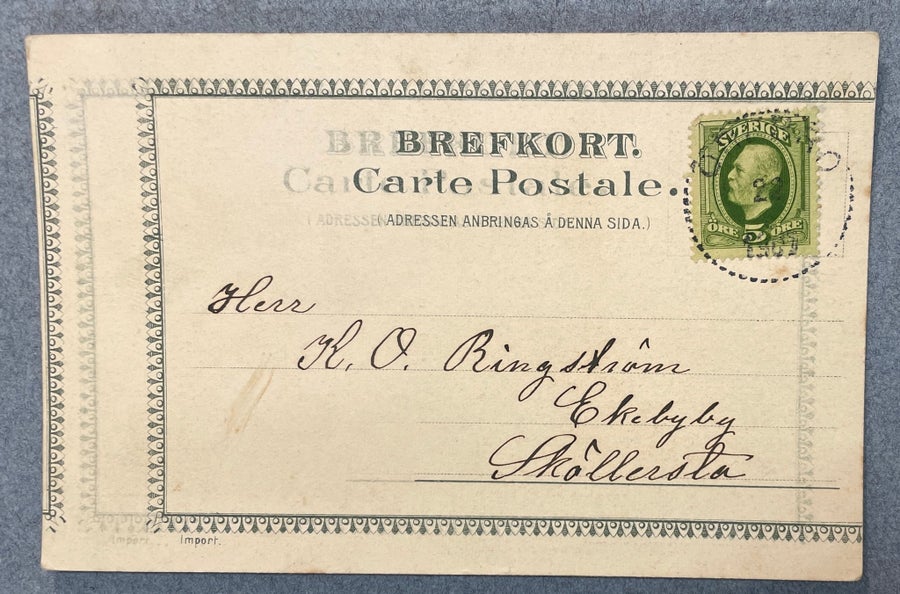 BREFKORT.
Carte Postale.
(ADRESSEN ANBRINGAS Å DENNA SIDA.)
SVERIGE
ÖRE 5 ÖRE
Herr
K. O. Ringström
Ekebyby
Sköllersta
Import.
Import.